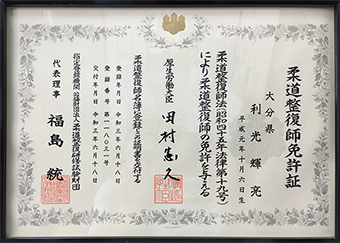 柔道整復師免許証
大分県
利光輝亮
平成元年十月六日生
柔道整復師法(昭和四十五年法律第十九号)
により柔道整復師の免許を与える
厚生労働大臣 田村憲久
柔道整復師名簿に登録し本証明書を交付する
登録年月日 令和三年六月十八日
登録番号
交付年月日 令和三年六月十八日
指定登録機関 公益財団法人柔道整復研修試験財団
代表理事 福島統